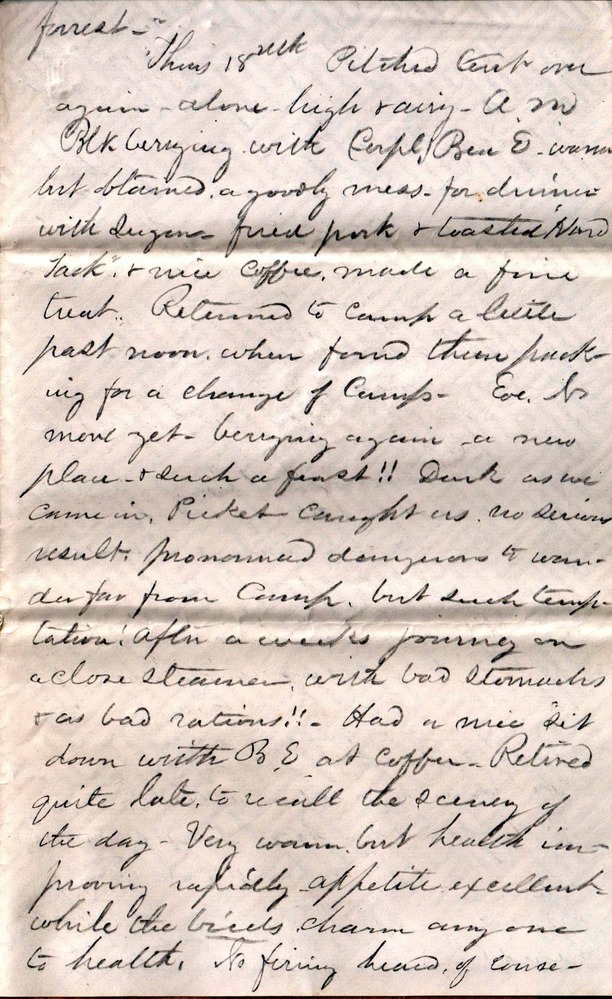 forrest-"
Thurs 18th Pitched tent over
again - alone - high & airy - A. M
Blk berrying with Corpl, Ben E - warm
but obtained, a goodly mess - for dinner
with Sugar - fried pork & toasted "Hard
Tack", & nice coffee, made a fine
treat. Returned to camp a little
past noon, when found them pack-
ing for a change of Camp - Eve, No
move yet - berrying again - a new
place - & such a feast!! Dark as we
came in, Picket caught us, no serious
result, pronounced dangerous to wan-
der far from Camp, but such temp-
tation! After a weeks journey on
a close steamer, with bad stomachs
& as bad rations!! - Had a nice sit
down with B E at coffee - Retired
quite late, to recall the scenes of
the day - Very warm, but health im-
proving rapidly - appetite excellent -
while the birds charm any one
to health. No firing heard, of conse-